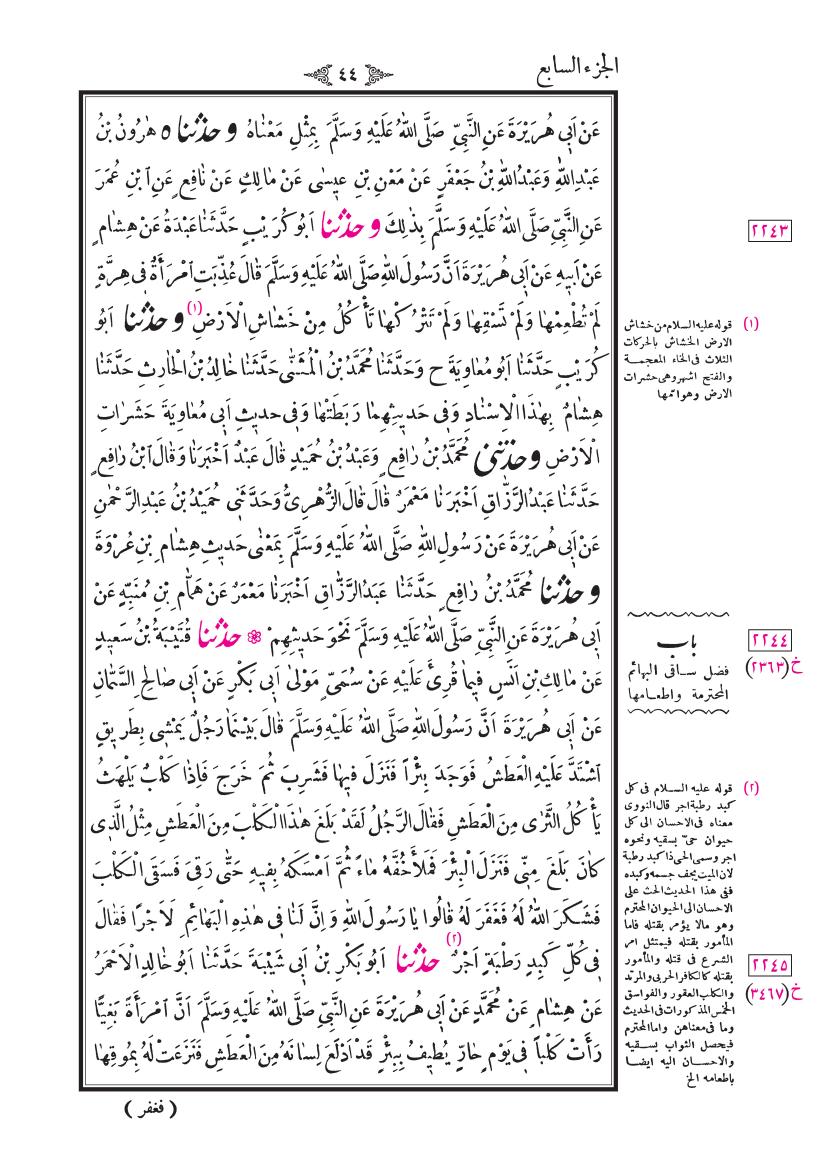 الجزء السابع
٤٤
عَنْ اَبِى هُرَيْرَةَ عَنِ النَّبِىِّ صَلَّى اللهُ عَلَيْهِ وَسَلَّمَ بِمِثْلِ مَعْنَاهُ وحدثنا ٥ هٰرُونُ بْنُ
عَبْدِاللهِ وَعَبْدُاللهِ بْنُ جَعْفَرٍ عَنْ مَعْنِ بْنِ عِيسٰى عَنْ مَالِكٍ عَنْ نَافِعٍ عَنِ ابْنِ عُمَرَ
عَنِ النَّبِىِّ صَلَّى اللهُ عَلَيْهِ وَسَلَّمَ بِذٰلِكَ وحدثنا اَبُوكُرَيْبٍ حَدَّثَنَا عَبْدَةُ عَنْ هِشَامٍ
عَنْ اَبِيهِ عَنْ اَبِى هُرَيْرَةَ اَنَّ رَسُولَ اللهِ صَلَّى اللهُ عَلَيْهِ وَسَلَّمَ قَالَ عُذِّبَتِ امْرَأَةٌ فِى هِرَّةٍ
لَمْ تُطْعِمْهَا وَلَمْ تَسْقِهَا وَلَمْ تَتْرُكْهَا تَأْكُلُ مِنْ خَشَاشِ الْاَرْضِ (١) وحدثنا اَبُو
كُرَيْبٍ حَدَّثَنَا اَبُومُعَاوِيَةَ ح وَحَدَّثَنَا مُحَمَّدُ بْنُ الْمُثَنّٰى حَدَّثَنَا خَالِدُ بْنُ الْحَارِثِ حَدَّثَنَا
هِشَامٌ بِهٰذَا الْاِسْنَادِ وَفِى حَدِيثِهِمَا رَبَطَتْهَا وَفِى حَدِيثِ اَبِى مُعَاوِيَةَ حَشَرَاتِ
الْاَرْضِ وحدثنى مُحَمَّدُ بْنُ رَافِعٍ وَعَبْدُ بْنُ حُمَيْدٍ قَالَ عَبْدٌ اَخْبَرَنَا وَقَالَ ابْنُ رَافِعٍ
حَدَّثَنَا عَبْدُالرَّزَّاقِ اَخْبَرَنَا مَعْمَرٌ قَالَ قَالَ الزُّهْرِىُّ وَحَدَّثَنِى حُمَيْدُ بْنُ عَبْدِالرَّحْمٰنِ
عَنْ اَبِى هُرَيْرَةَ عَنْ رَسُولِ اللهِ صَلَّى اللهُ عَلَيْهِ وَسَلَّمَ بِمَعْنٰى حَدِيثِ هِشَامِ بْنِ عُرْوَةَ
وحدثنا مُحَمَّدُ بْنُ رَافِعٍ حَدَّثَنَا عَبْدُالرَّزَّاقِ اَخْبَرَنَا مَعْمَرٌ عَنْ هَمَّامِ بْنِ مُنَبِّهٍ عَنْ
اَبِى هُرَيْرَةَ عَنِ النَّبِىِّ صَلَّى اللهُ عَلَيْهِ وَسَلَّمَ نَحْوَ حَدِيثِهِمْ حدثنا قُتَيْبَةُ بْنُ سَعِيدٍ
عَنْ مَالِكِ بْنِ اَنَسٍ فِيمَا قُرِئَ عَلَيْهِ عَنْ سُمَىٍّ مَوْلٰى اَبِى بَكْرٍ عَنْ اَبِى صَالِحٍ السَّمَّانِ
عَنْ اَبِى هُرَيْرَةَ اَنَّ رَسُولَ اللهِ صَلَّى اللهُ عَلَيْهِ وَسَلَّمَ قَالَ بَيْنَمَا رَجُلٌ يَمْشِى بِطَرِيقٍ
اشْتَدَّ عَلَيْهِ الْعَطَشُ فَوَجَدَ بِئْراً فَنَزَلَ فِيهَا فَشَرِبَ ثُمَّ خَرَجَ فَاِذَا كَلْبٌ يَلْهَثُ
يَأْكُلُ الثَّرٰى مِنَ الْعَطَشِ فَقَالَ الرَّجُلُ لَقَدْ بَلَغَ هٰذَا الْكَلْبَ مِنَ الْعَطَشِ مِثْلُ الَّذِى
كَانَ بَلَغَ مِنِّى فَنَزَلَ الْبِئْرَ فَمَلَأَ خُفَّهُ مَاءً ثُمَّ اَمْسَكَهُ بِفِيهِ حَتّٰى رَقِىَ فَسَقَى الْكَلْبَ
فَشَكَرَ اللهُ لَهُ فَغَفَرَ لَهُ قَالُوا يَا رَسُولَ اللهِ وَاِنَّ لَنَا فِى هٰذِهِ الْبَهَائِمِ لَاَجْراً فَقَالَ
فِى كُلِّ كَبِدٍ رَطْبَةٍ اَجْرٌ (٢) حدثنا اَبُوبَكْرِ بْنُ اَبِى شَيْبَةَ حَدَّثَنَا اَبُوخَالِدٍ الْاَحْمَرُ
عَنْ هِشَامٍ عَنْ مُحَمَّدٍ عَنْ اَبِى هُرَيْرَةَ عَنِ النَّبِىِّ صَلَّى اللهُ عَلَيْهِ وَسَلَّمَ اَنَّ امْرَأَةً بَغِيًّا
رَأَتْ كَلْباً فِى يَوْمٍ حَارٍّ يُطِيفُ بِبِئْرٍ قَدْ اَدْلَعَ لِسَانَهُ مِنَ الْعَطَشِ فَنَزَعَتْ لَهُ بِمُوقِهَا
( فغفر )
٢٢٤٣
(١) قوله عليه السلام من خشاش
الارض الخشاش بالحركات
الثلاث فى الخاء المعجمة
والفتح اشهر وهى حشرات
الارض وهوامها
باب
فضل ساقى البهائم
المحترمة واطعامها
٢٢٤٤
خ (٢٣٦٣)
(٢) قوله عليه السلام فى كل
كبد رطبة اجر قال النووى
معناه فى الاحسان الى كل
حيوان حىّ بسقيه ونحوه
اجر وسمى الحى ذا كبد رطبة
لان الميت يجف جسمه وكبده
ففى هذا الحديث الحث على
الاحسان الى الحيوان المحترم
وهو مالا يؤمر بقتله فاما
المأمور بقتله فيمتثل امر
الشرع فى قتله والمأمور
بقتله كالكافر الحربى والمرتد
والكلب العقور والفواسق
الخمس المذكورات فى الحديث
وما فى معناهن واما المحترم
فيحصل الثواب بسقيه
والاحسان اليه ايضا
باطعامه الخ
٢٢٤٥
خ (٣٤٦٧)